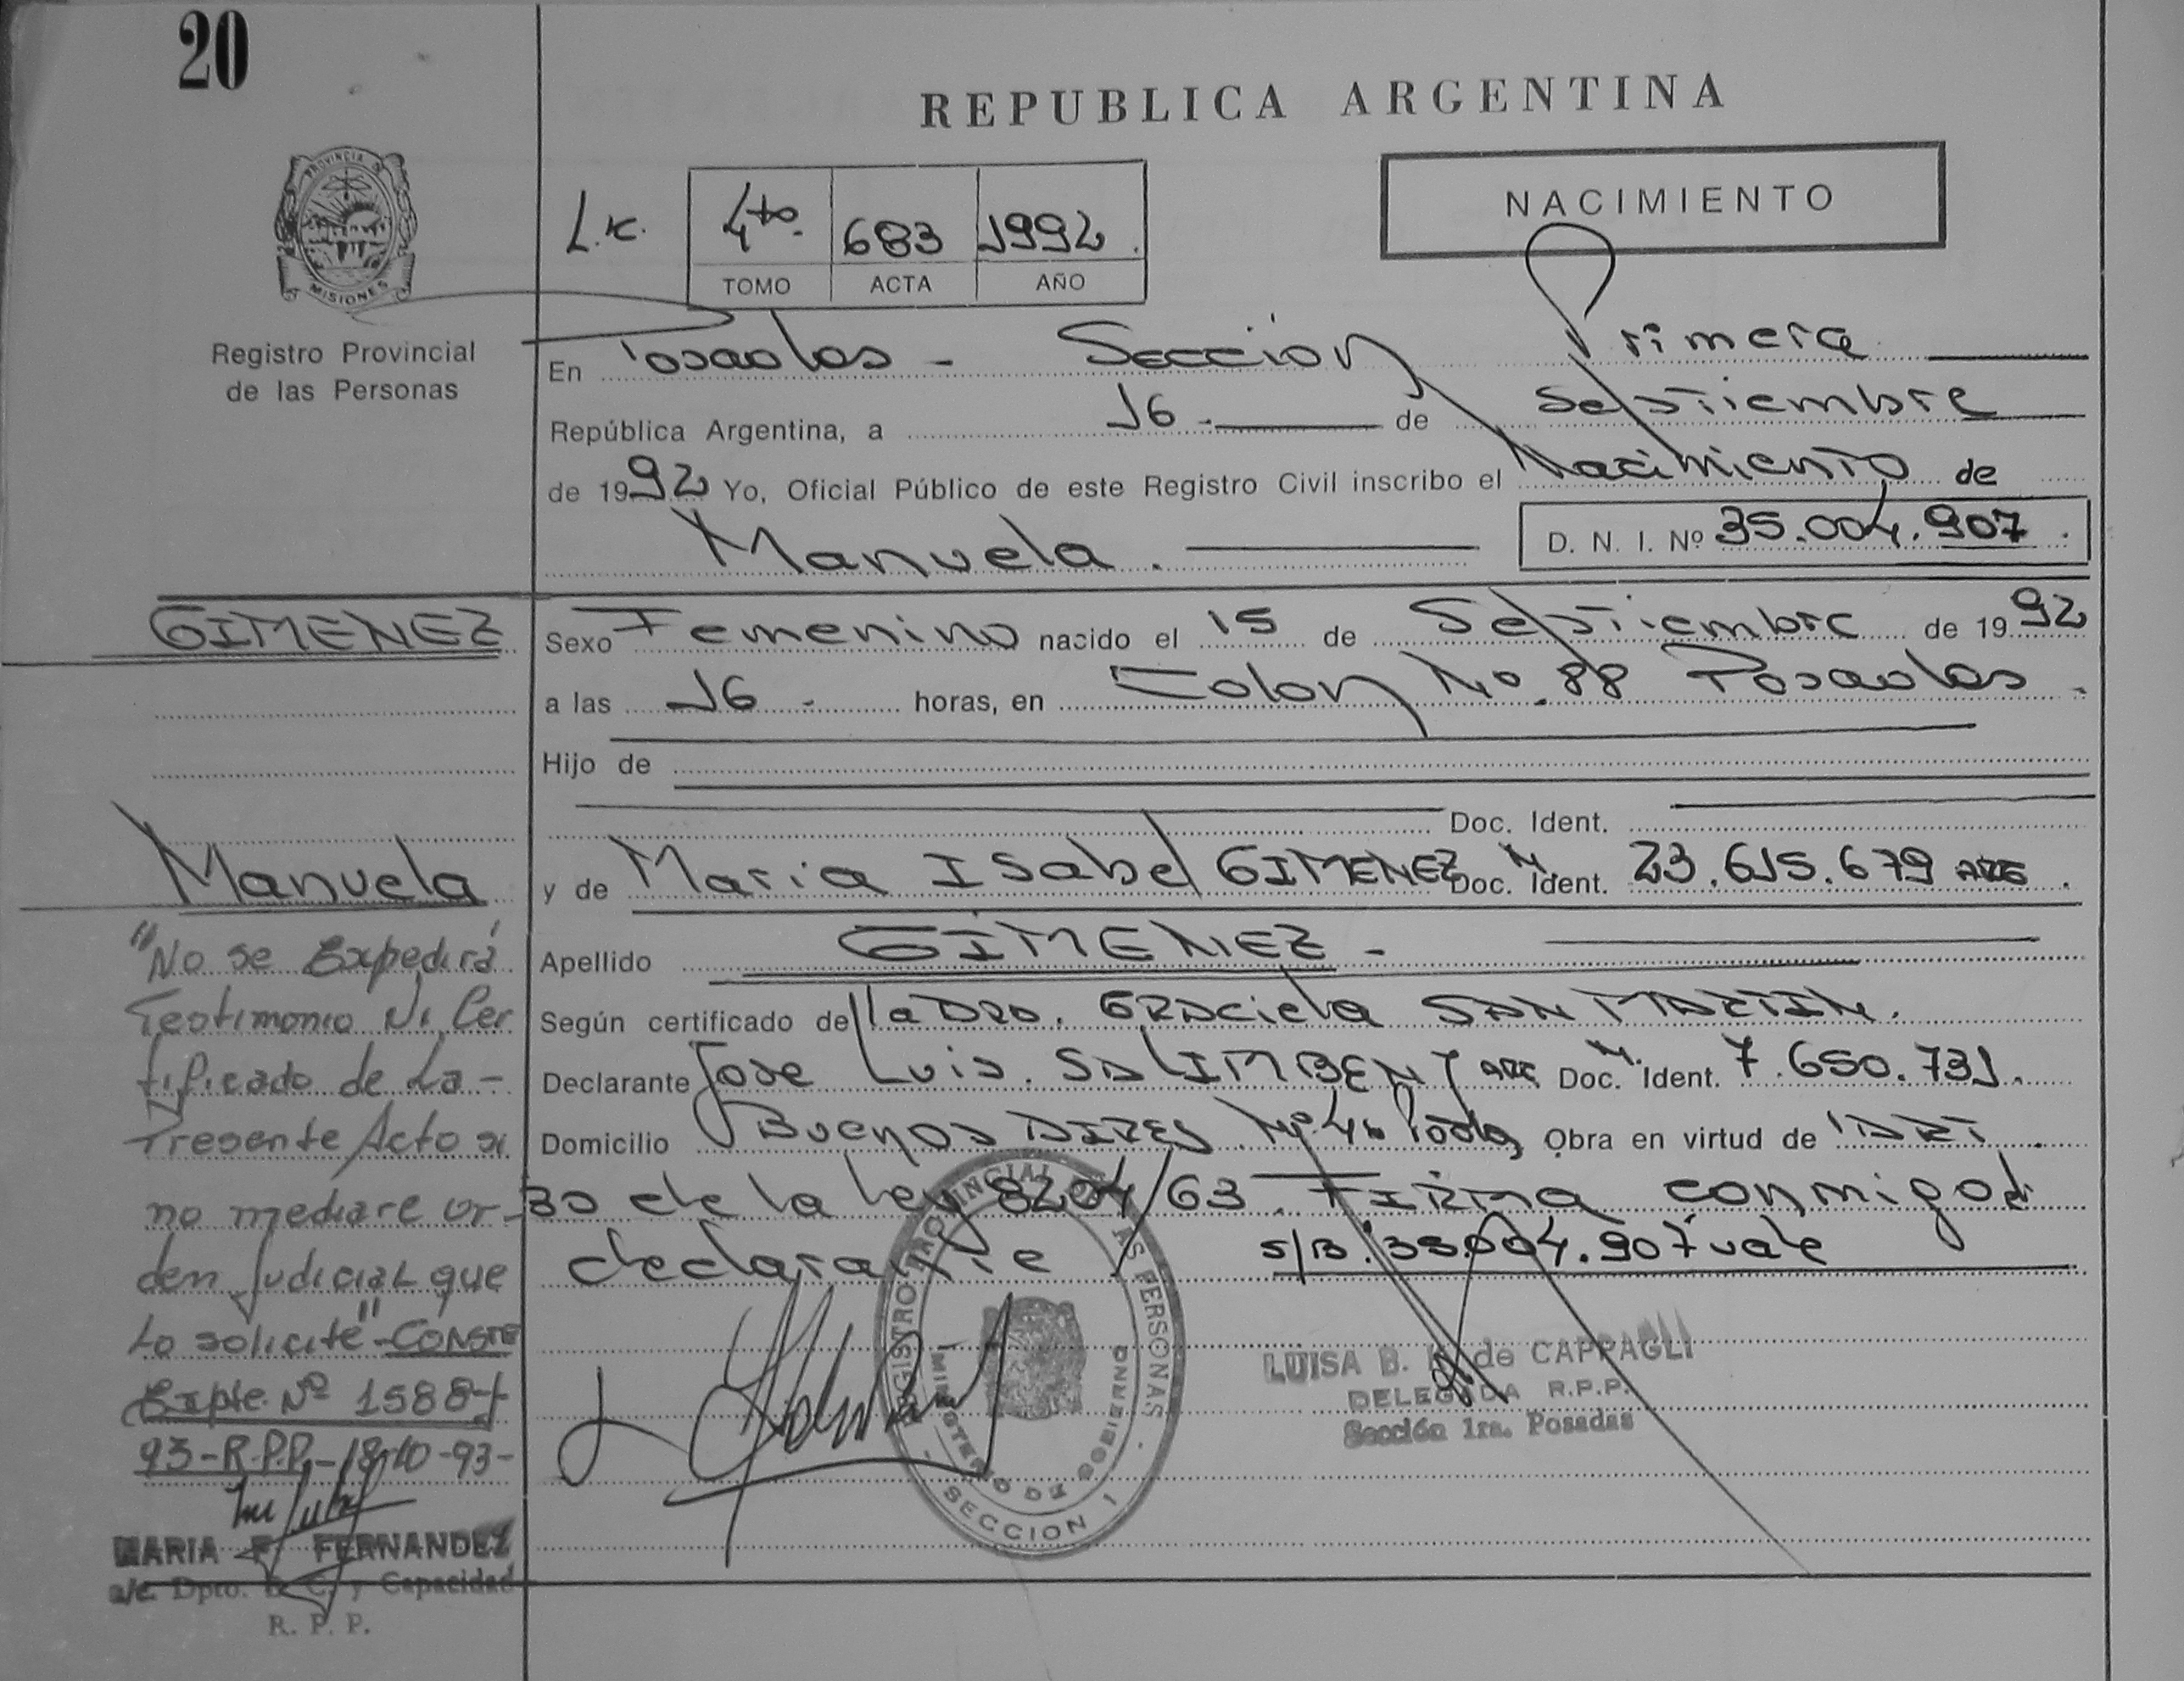 20
REPUBLICA ARGENTINA
PROVINCIA DE
MISIONES
Registro Provincial
de las Personas
L.C.
4to. 683 1992.
TOMO ACTA AÑO
NACIMIENTO
En Posadas - Sección Primera
República Argentina, a 16 de Septiembre
de 1992 Yo, Oficial Público de este Registro Civil inscribo el Nacimiento de
Manuela. D. N. I. Nº 35.004.907.
GIMENEZ
Sexo Femenino nacido el 15 de Septiembre de 1992
a las 16 - horas, en Colon Nº 88 Posadas.
Hijo de
Doc. Ident.
Manuela
y de Maria Isabel GIMENEZ Doc. Ident. 23.615.679
Apellido GIMENEZ -
Según certificado de la Dra. Graciela SAN MARTIN.
Declarante Jose Luis SALIMBENI Doc. Ident. 7.650.731.
Domicilio Buenos Aires Nº 46 Pdas, Obra en virtud de Art.
30 de la Ley 8204/63. Firma conmigo el
declarante s/B. 35.004.907 vale
"No se Expedirá
Testimonio Ni Cer
tificado de La -
Presente Acto si
no mediare or-
den Judicial que
Lo solicite" - CONSTE
Expte. Nº 1588-/
93-R.P.P.-18-10-93-
MARIA F. FERNANDEZ
a/c. Dpto. E. C. y Capacidad
R. P. P.
REGISTRO PROVINCIAL DE LAS PERSONAS
MINISTERIO DE GOBIERNO
SECCION 1
LUISA B. de CAPPAGLI
DELEGADA R.P.P.
Sección 1ra. Posadas